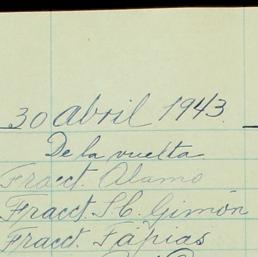 30 abril 1943.
De la vuelta
Fracct. Alamo
Fracct. S C. Gimón
Fracct. Tápias